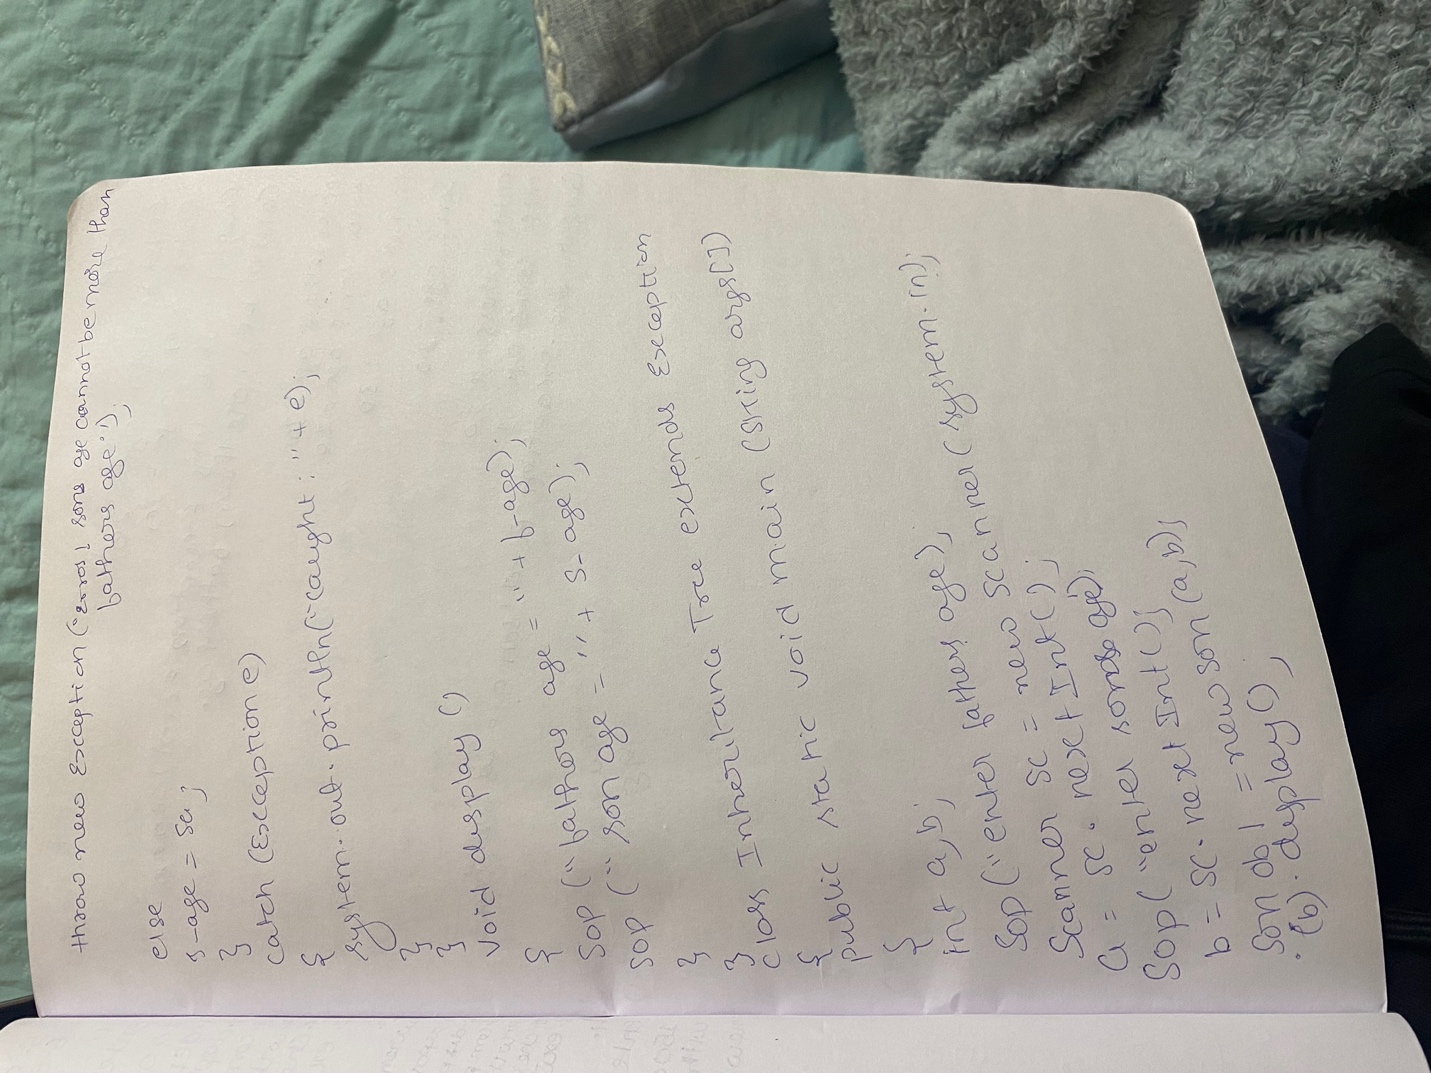 throw new Exception ("error! sons age cannot be more than
fathers age");
else
s-age = sa;
}
catch (Exception e)
{
system.out.println("caught: "+e);
}
}
void display ()
{
SOP ("fathers age = "+ b-age);
SOP (" son age = "+ s-age);
}
}
class Inheritance Tree extends Exception
{
public static void main (String args[])
{
int a,b;
SOP ("enter fathers age);
Scanner sc = new Scanner (system.in);
a = sc. next Int();
SOP ( "enter sons age);
b = sc. next Int();
son ob1 = new son (a,b);
. (b). display();